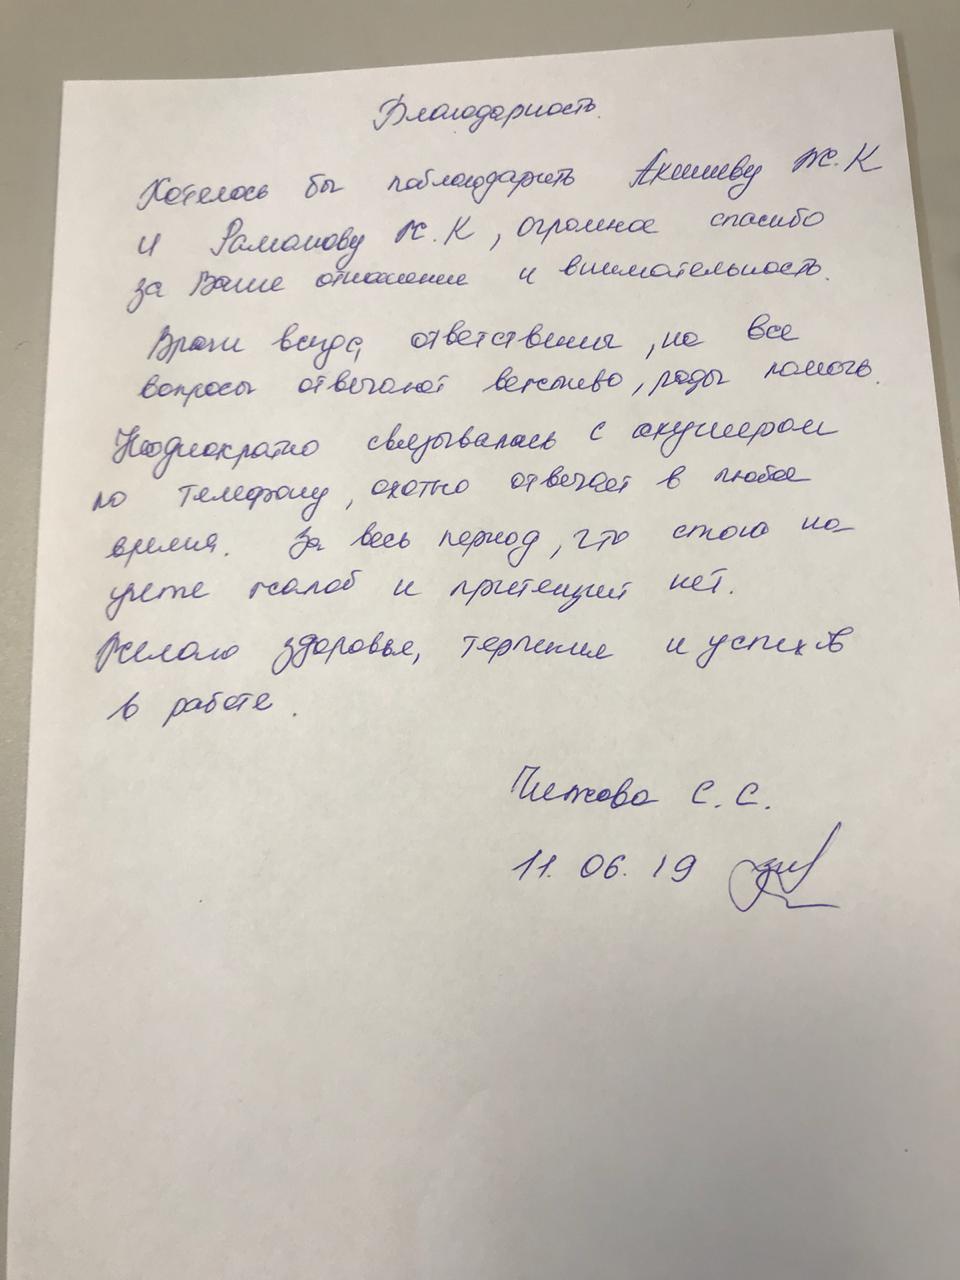 Благодарность.
Хотелось бы поблагодарить Акишеву Ж.К
и Рамонову К.К, огромное спасибо
за Ваше отношение и внимательность.
Врачи всегда ответственны, на все
вопросы отвечают вежливо, рады помочь.
Неоднократно связывалась с акушером
по телефону, охотно отвечает в любое
время. За весь период, что стою на
учете жалоб и притенций нет.
Желаю здоровья, терпения и успехов
в работе.
С. С.
11. 06. 19